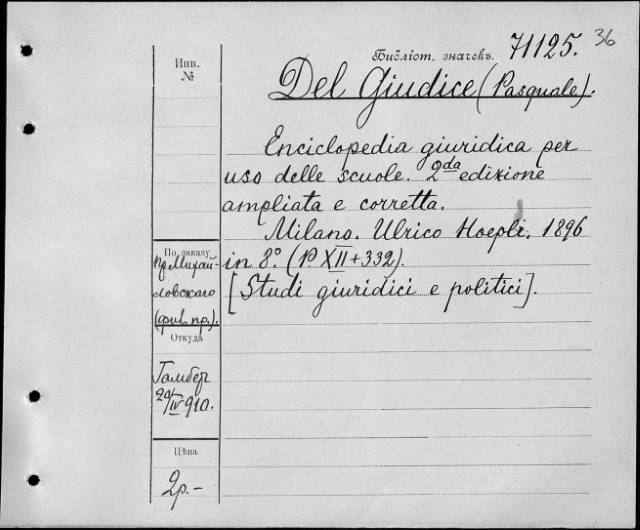 Библіот. значекъ. 71125. 36
Инв.
№
Del Giudice (Pasquale).
Enciclopedia giuridica per
uso delle scuole. 2da edizione
ampliata e corretta.
Milano. Ulrico Hoepli. 1896
in 8º. (P XII + 332).
[Studi giuridici e politici].
По заказу
пр. Михай-
ловскаго
(фив. пр.).
Откуда
Гамбер
20/IV 910.
Цѣна
2р.-